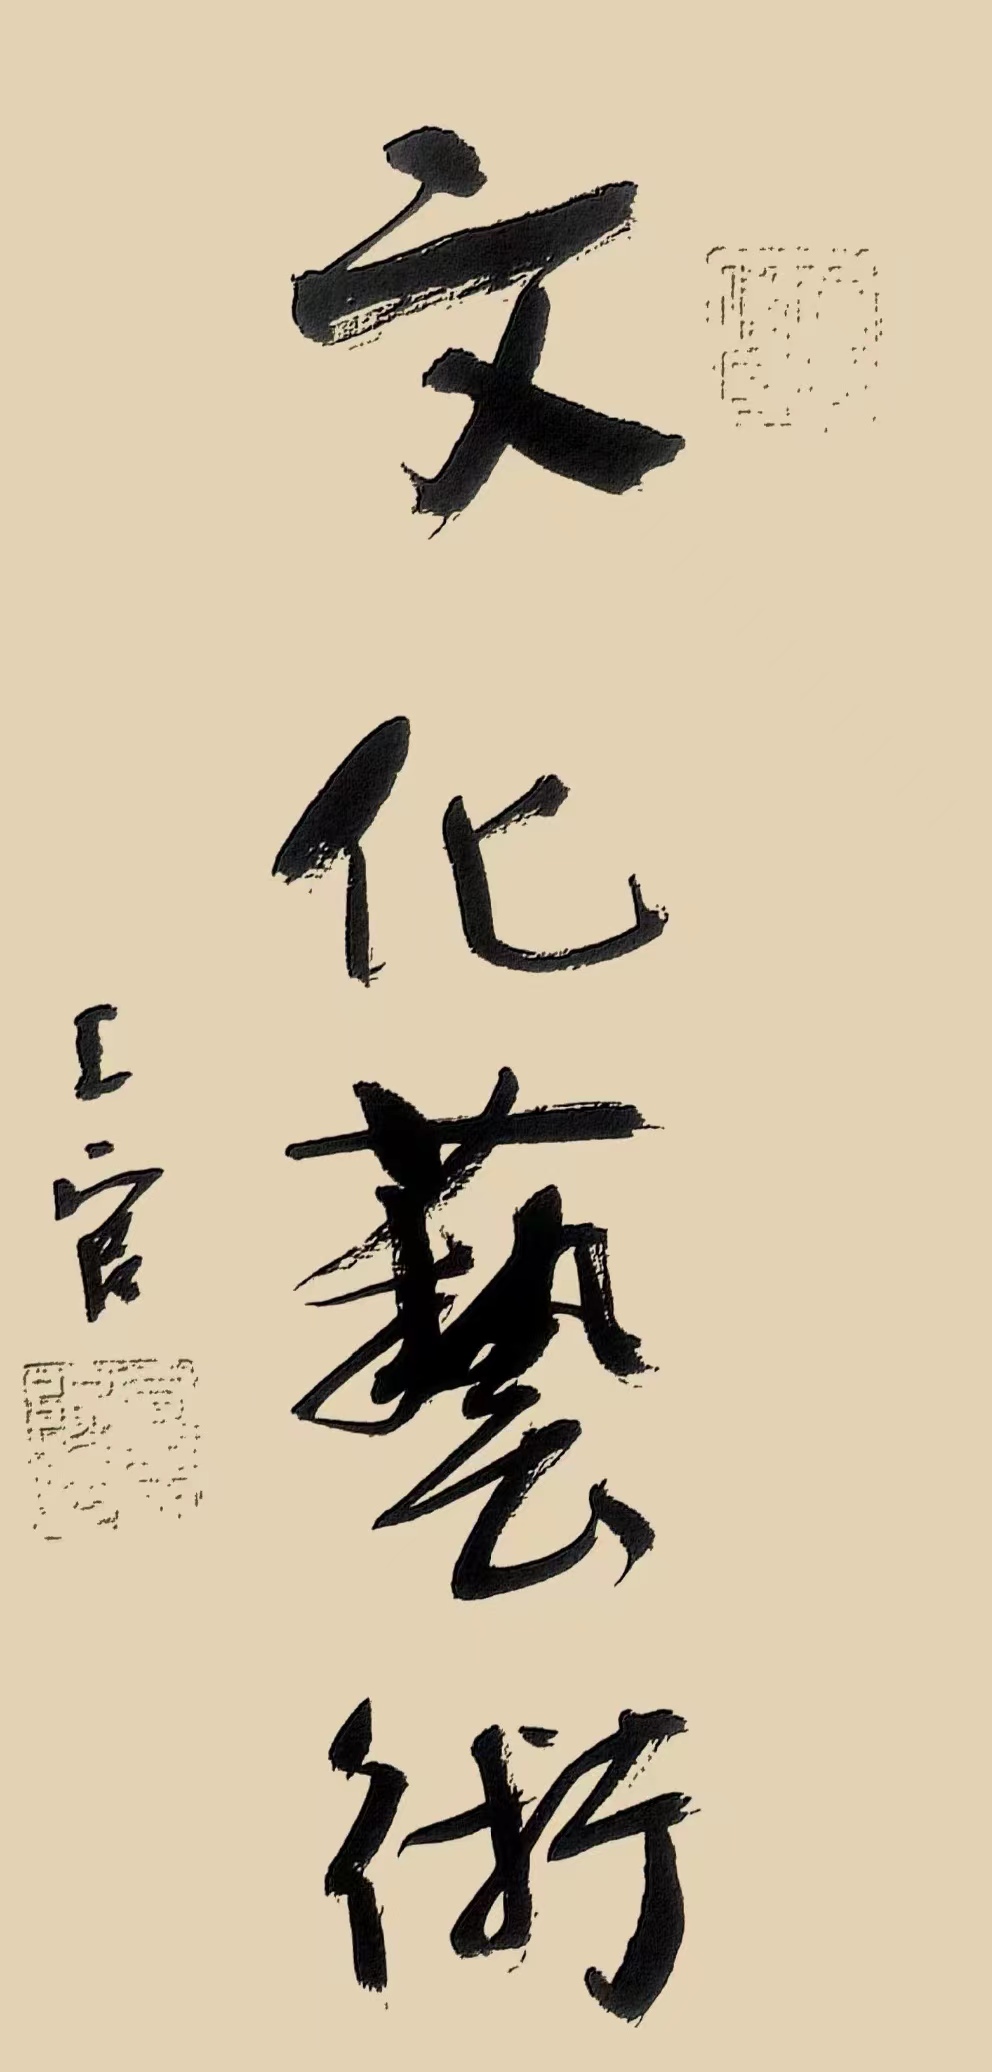 文化藝術
王官